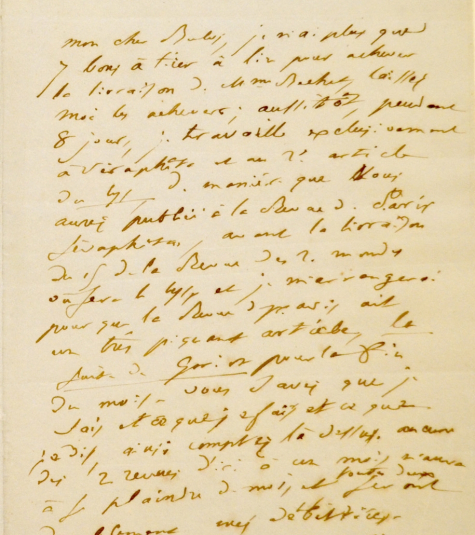 mon cher Buloz, je n'ai plus que
7 bons à tirer à lire pour achever
la livraison d. Mme Bechet, laissez
moi les achever; aussitôt, pendant
8 jours, je travaille exclusivement
à Séraphita et au 2e article
du lys d. manière que vous
aurez publié à la Revue d. Paris
Séraphita, avant la livraison
du 15 de la Revue des 2. mondes
où sera le lys et je m'arrangerai
pour que la Revue d. paris ait
un très piquant article, la
suite de Goriot pour la fin
du mois. vous savez que je
sais ce que je fais et ce que
je dis, ainsi comptez là dessus. aucune
des 2 revues d'ici à un mois n'aura
à se plaindre de moi, et seront
toutes deux
mes débitrices.